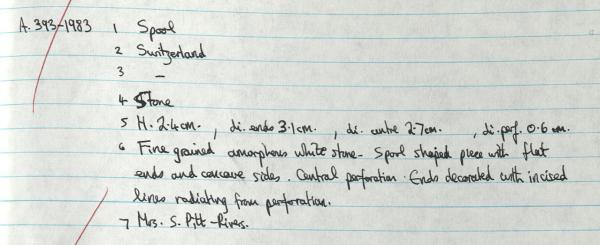 A. 393-1983 1 Spool
2 Switzerland
3 –
4 Stone
5 H. 2.4cm. , di. ends 3.1cm. , di. centre 2.7cm. , di. perf. 0.6 cm.
6 Fine grained amorphous white stone - Spool shaped piece with flat
ends and concave sides. Central perforation. Ends decorated with incised
lines radiating from perforation.
7 Mrs. S. Pitt-Rivers.